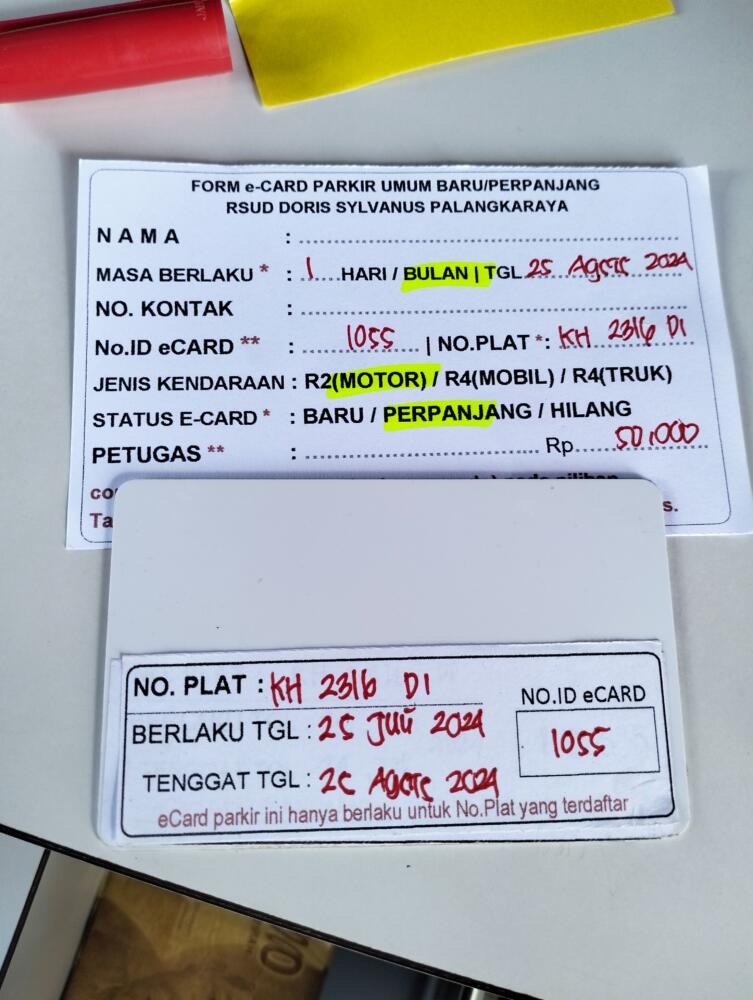 FORM e-CARD PARKIR UMUM BARU/PERPANJANG
RSUD DORIS SYLVANUS PALANGKARAYA
N A M A :
MASA BERLAKU * : 1 HARI / BULAN | TGL 25 Agsts 2024
NO. KONTAK :
No.ID eCARD ** : 1055 | NO.PLAT *: KH 2316 DI
JENIS KENDARAAN : R2(MOTOR) / R4(MOBIL) / R4(TRUK)
STATUS E-CARD * : BARU / PERPANJANG / HILANG
PETUGAS ** : Rp. 50.000
NO. PLAT : KH 2316 DI
BERLAKU TGL : 25 Juli 2024
TENGGAT TGL : 25 Agsts 2024
NO.ID eCARD
1055
eCard parkir ini hanya berlaku untuk No.Plat yang terdaftar
10